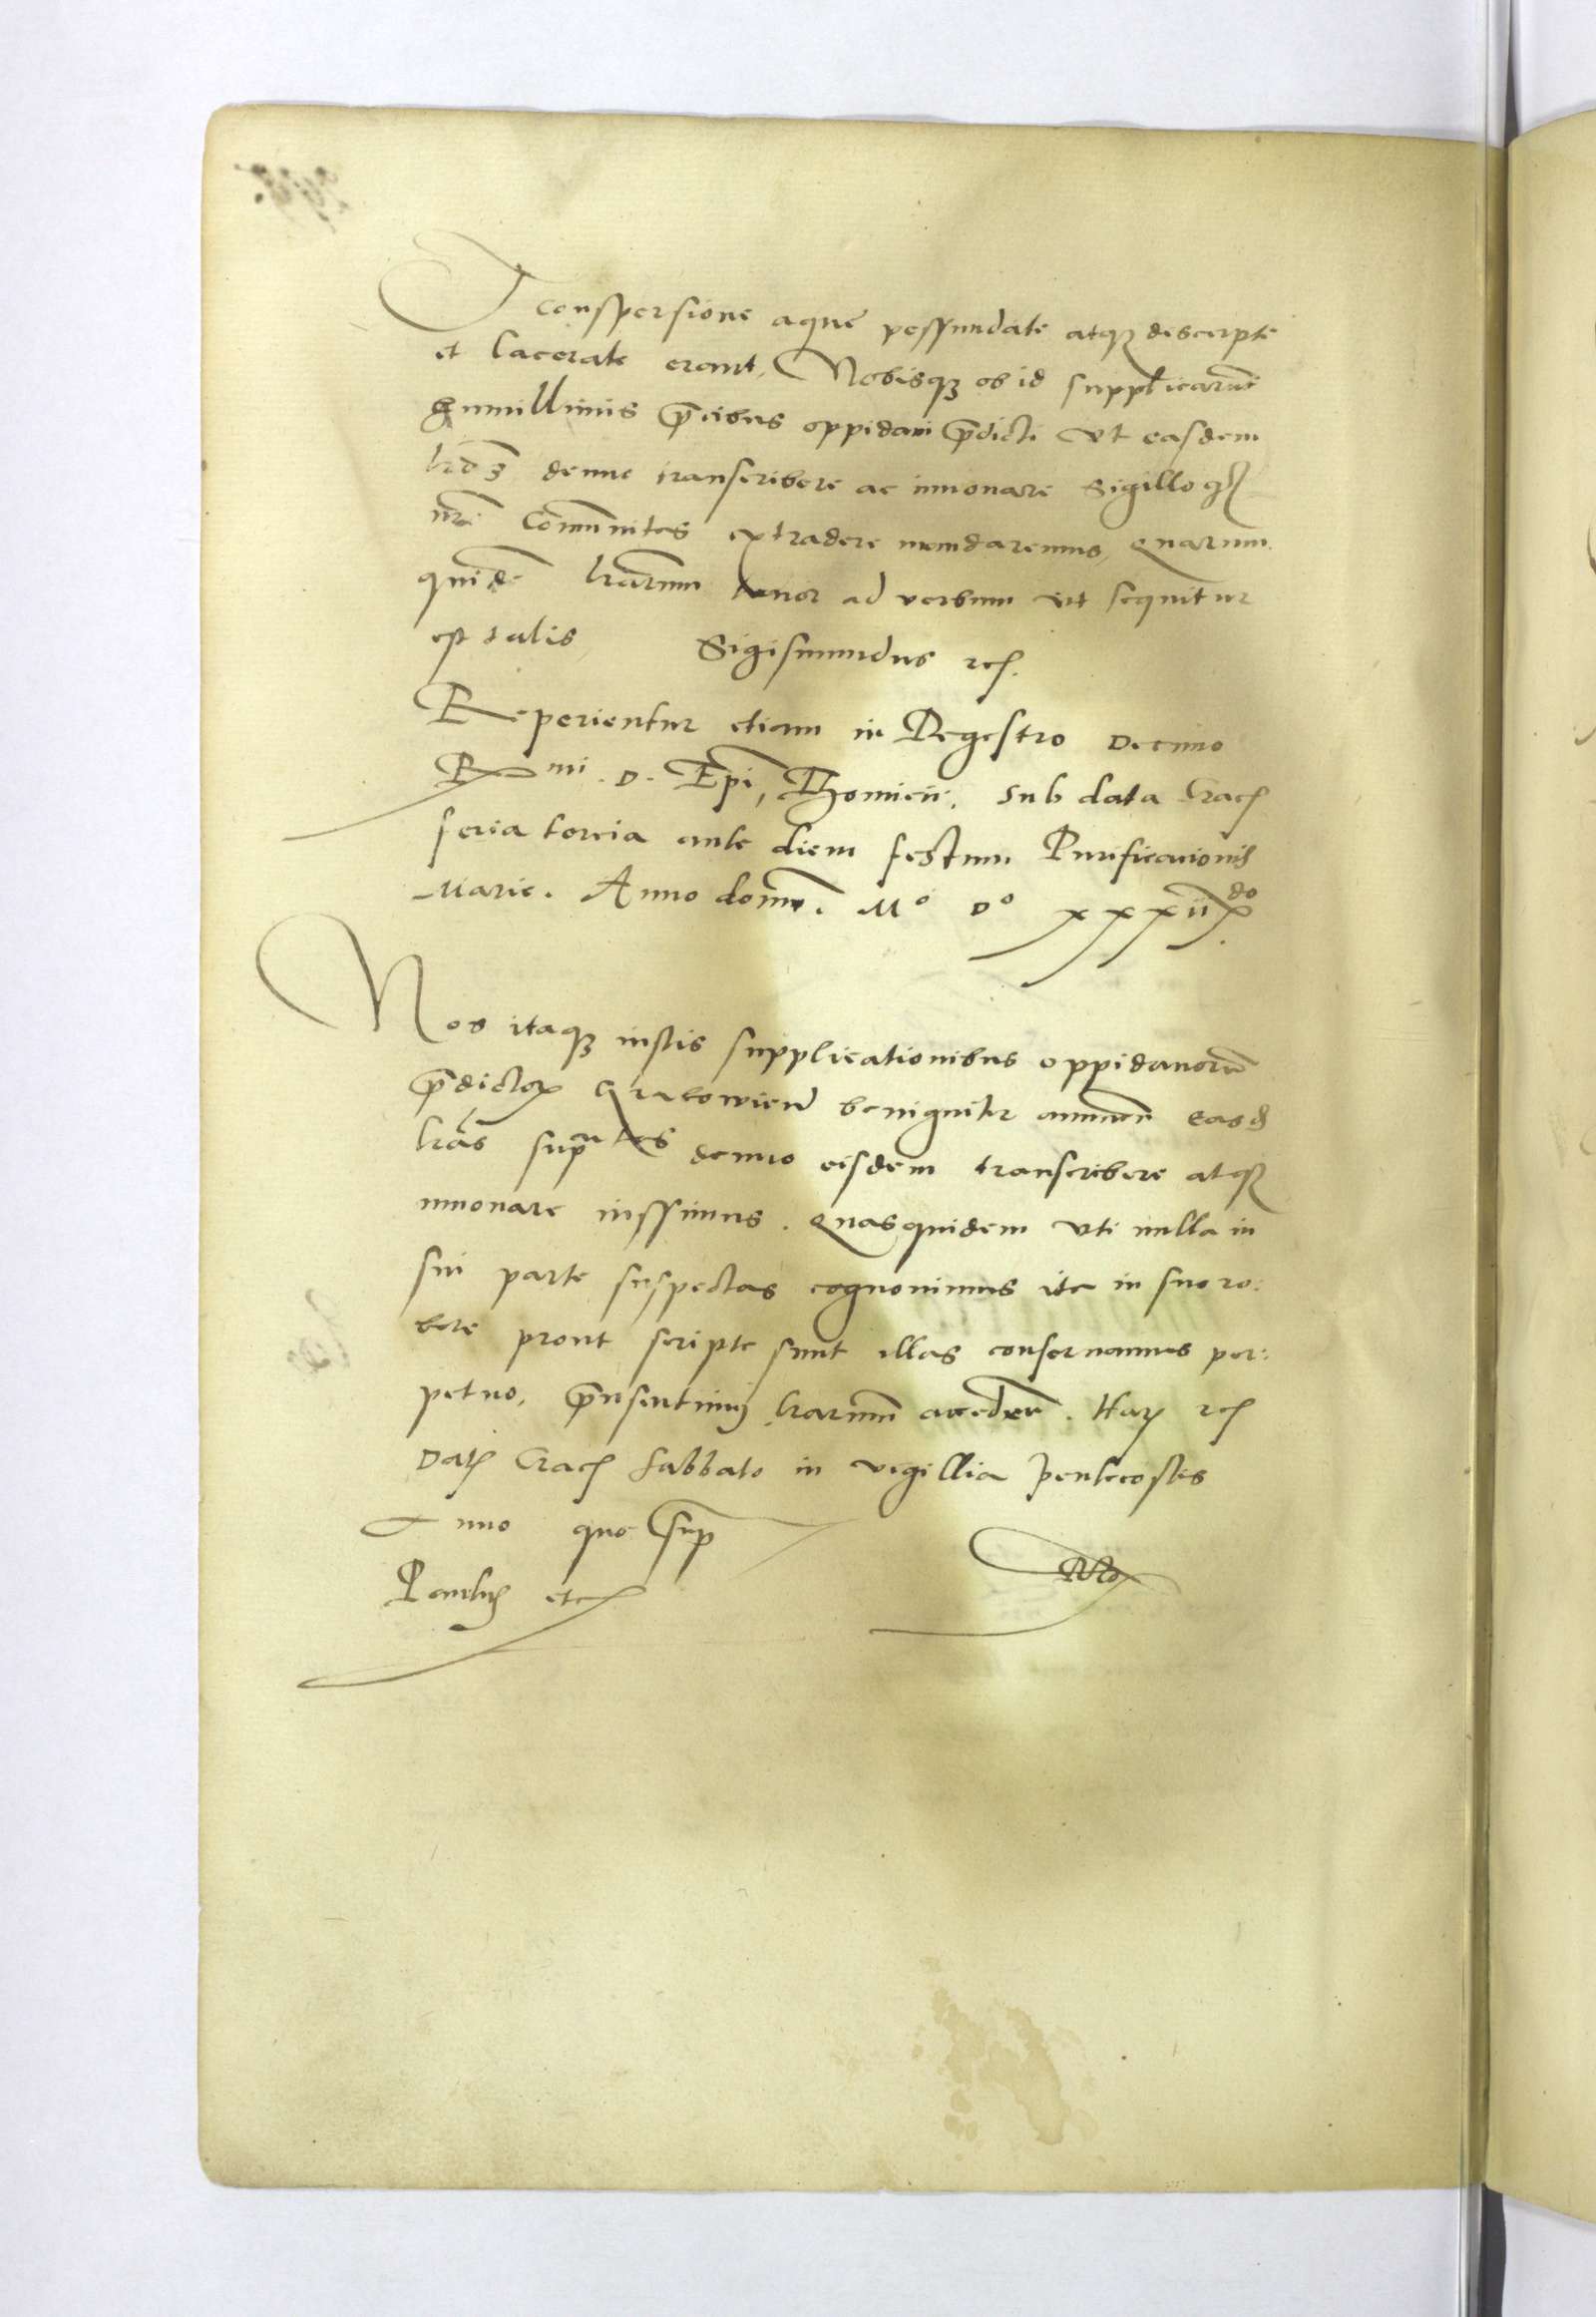 conspersione aque pessundate atqz descerpte
et lacerate erant, Nobisqz ob id supplicarunt
humillimis p̄cibus oppidani p̄dicti vt easdem
denuo transcribere ac innouare Sigilloqz
nr̄i communitas extradere mandaremus, Quarum
quidē lr̄arum tenor ad verbum vt sequitur
est talis, Sigismundus etc.
Reperientur etiam in Regestro Decimo
R mi. D. Ep̄i, Thomicii. Sub data Crac
feria tercia ante diem festum Purificationis
Marie. Anno domi. Mº Dº xxxii do
Nos itaqz iustis supplicationibus oppidanorū
p̄dictor benigniter annuen̄ easd
lr̄as sup tas denuo eisdem transcribere atqz
innonare iussimus. Quasquidem vti nulla in
sui parte suspectas cognouimus ita in suo ro:
bore prout scripte sunt illas conseruamus per:
petuo, lr̄arum accedeň. Har etc
Dat Crac sabbato in vigillia Pentecostis
Anno quo sup
Paulus etc